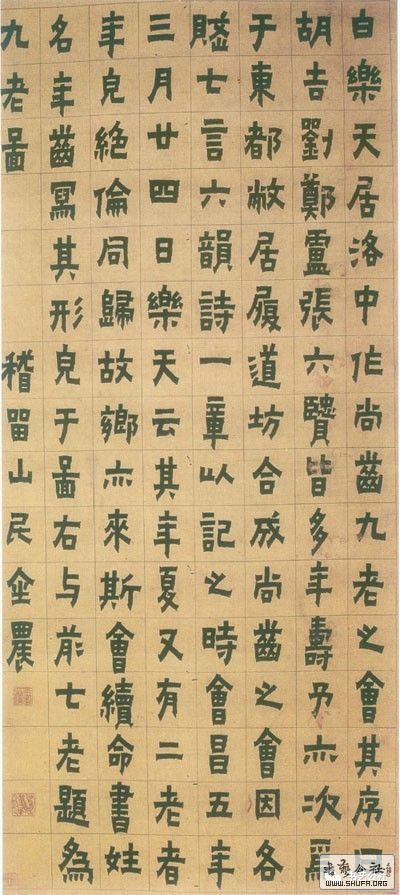 白樂天居洛中作尚齒九老之會其序曰
胡吉劉鄭盧張六賢皆多年壽予亦次焉
于東都敝居履道坊合成尚齒之會因各
賦七言六韻詩一章以記之時會昌五年
三月廿四日樂天云其年夏又有二老者
年皃絕倫同歸故鄉亦來斯會續命書姓
名年齒寫其形皃于啚右与前七老題為
九老啚 稽留山民金農
WWW.SHUFA.ORG